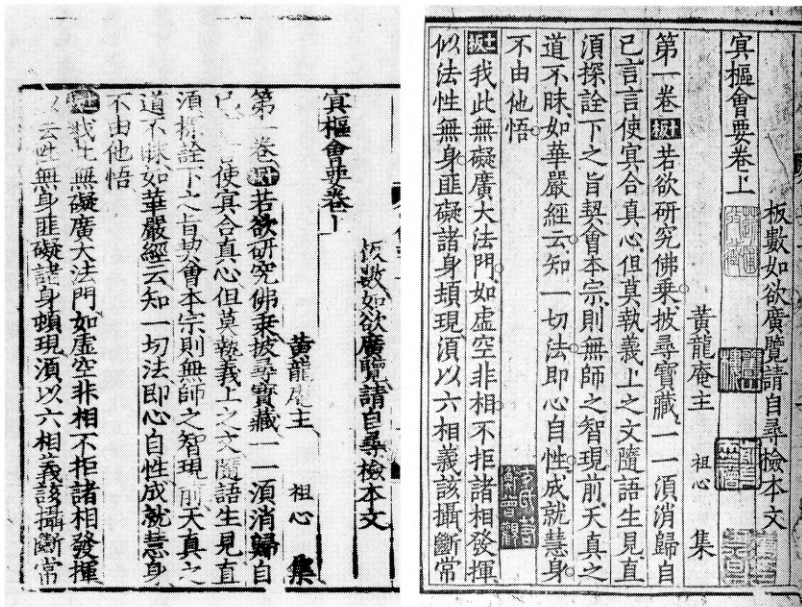 板數如欲廣覽請自尋檢本文
㝠樞會要卷上
黃龍庵主 祖心 集
第一卷十板若欲研究佛乘披尋寶藏一一須消歸自
己言言使㝠合真心但莫執義上之文隨語生見直
須探詮下之旨契會本宗則無師之智現前天真之
道不昧如華嚴經云知一切法即心自性成就慧身
不由他悟
十一板我此無礙廣大法門如虛空非相不拒諸相發揮
似法性無身匪礙諸身頻現須以六相義該攝斷常
板數如欲廣覽請自尋檢本文
㝠樞會要卷上
黃龍庵主 祖心 集
第一卷若欲研究佛乘披尋寶藏一一須消歸自
己使㝠合真心但莫執義上之文隨語生見直
須探詮下之旨契會本宗則無師之智現前天真之
道不昧如華嚴經云知一切法即心自性成就慧身
不由他悟
我此無礙廣大法門如虛空非相不拒諸相發揮
無身匪礙諸身頻現須以六相義該攝斷常